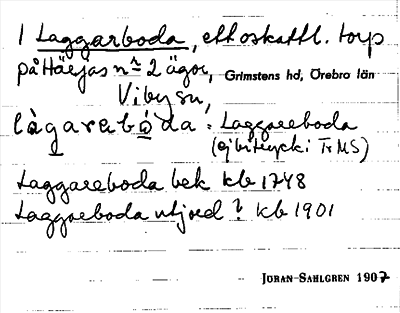 1 Laggarboda, ett oskattl. torp
på Härjas nr 2 ägor, Grimstens hd, Örebro län
Viby sn,
làgarebóda : Laggareboda
(ej bitryck i TrMS)
Laggareboda bek kb 1748
Laggareboda utjord ? kb 1901
JÖRAN SAHLGREN 1907